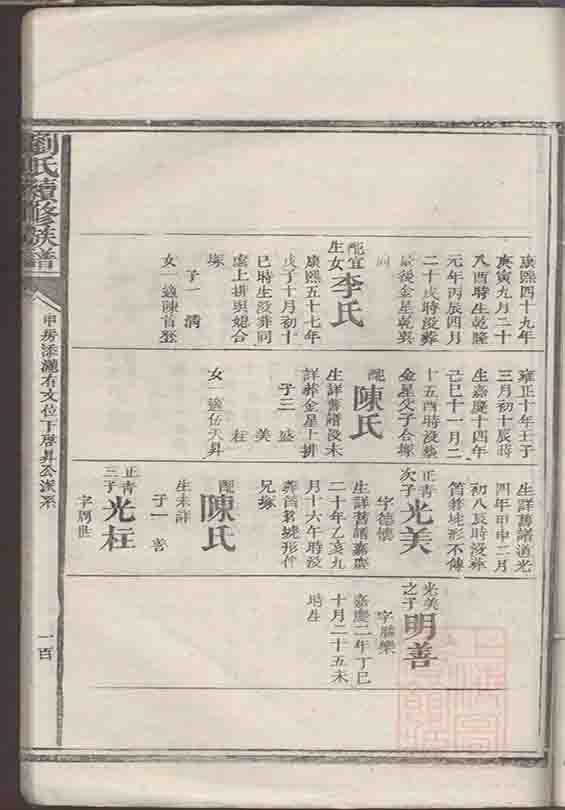 劉氏續修族譜
申房添灝有文位下啓昇公派系
一百
康熙四十九年
庚寅九月二十
八酉時生乾隆
元年丙辰四月
二十戌時没葬
最後金星乾巽
向
配宜
生女
李氏
康熙五十七年
戊子十月初十
巳時生没葬同
虛上排與媳合
塚
子一 清
女一適陳首登
雍正十年壬子
三月初十辰時
生嘉慶十四年
己巳十一月二
十五酉時没塟
金星父子合塚
配
陳氏
生詳舊譜没未
詳葬金星上排
子三 盛
美
柱
女一適伍天昇
生詳舊譜道光
四年甲申二月
初八辰時没葬
笛菶地形不傳
正青
次子
光美
字德懷
生詳舊譜嘉慶
二十年乙亥九
月十六午時没
葬茜菶坡形作
兄塚
配
陳氏
生未詳
子一 善
正青
三子
光柱
字周世
光美
之子
明善
字勝樂
嘉慶二年丁巳
十月二十五未
時生